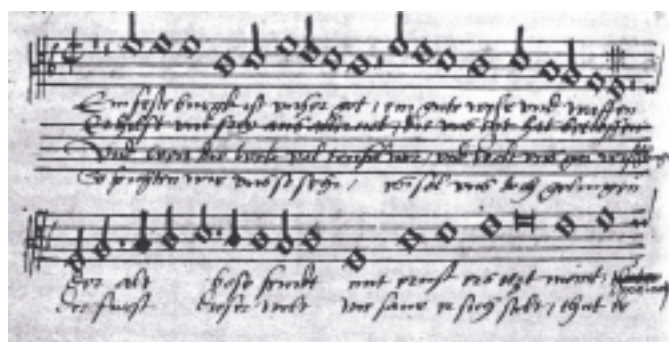 Ein feste burgk ist unser got / ein gute wehr und waffen
Er hilft uns frey aus aller not / die uns itzt hat betroffen
Und wenn die welt vol teufel wer / und wolt uns gar
So furchten wir uns so sehr / es sol uns doch gelingen
Der alt bose feindt mit ernst ers itzt meint
Der furst dieser welt wie saur er sich stelt / thut er